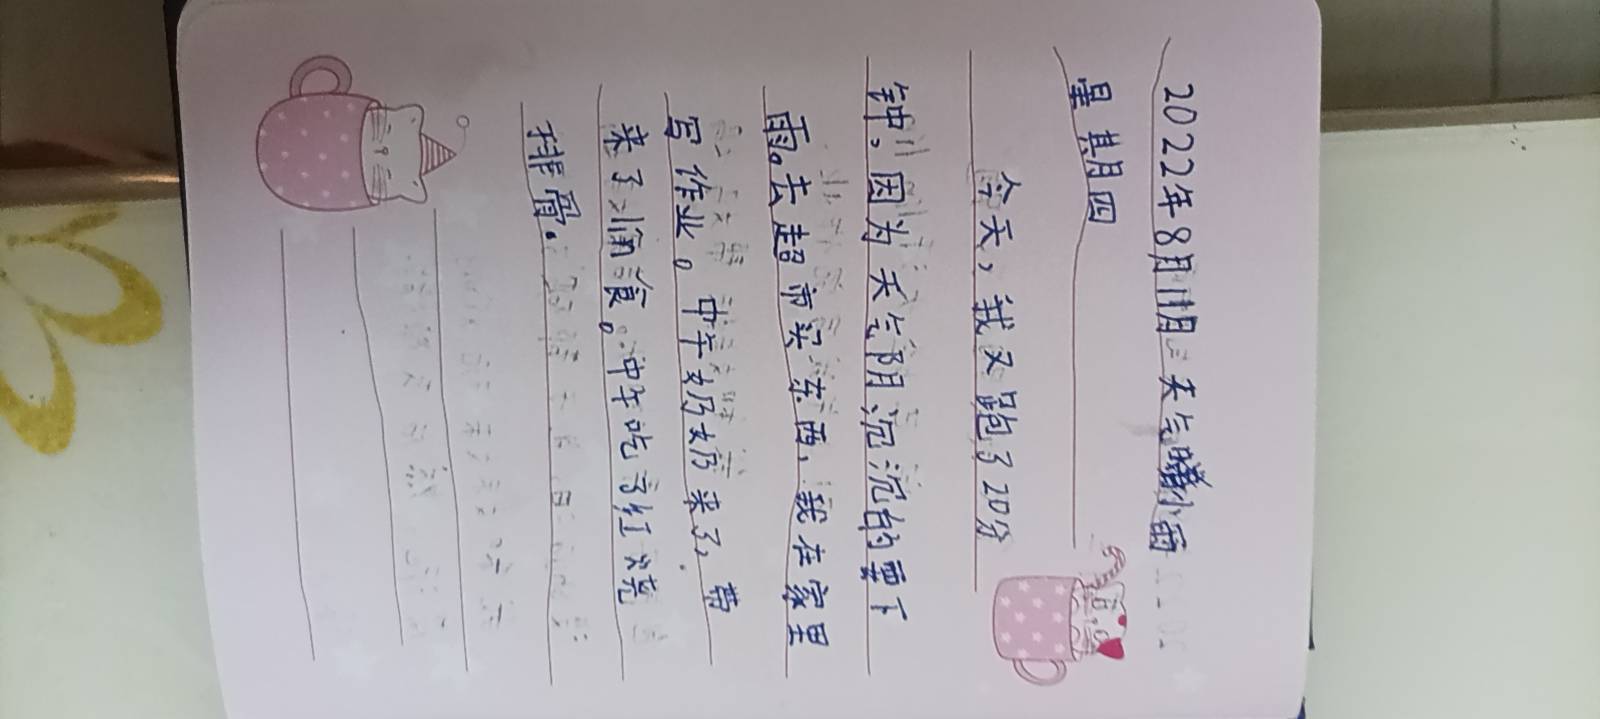 2022年8月11日 天气 小雨
星期四
今天，我又跑了20分
钟，因为天气阴沉沉的要下
雨。去超市买东西，我在家里
写作业。中午奶奶来了，带
来了 食。中午吃了红烧
排骨。